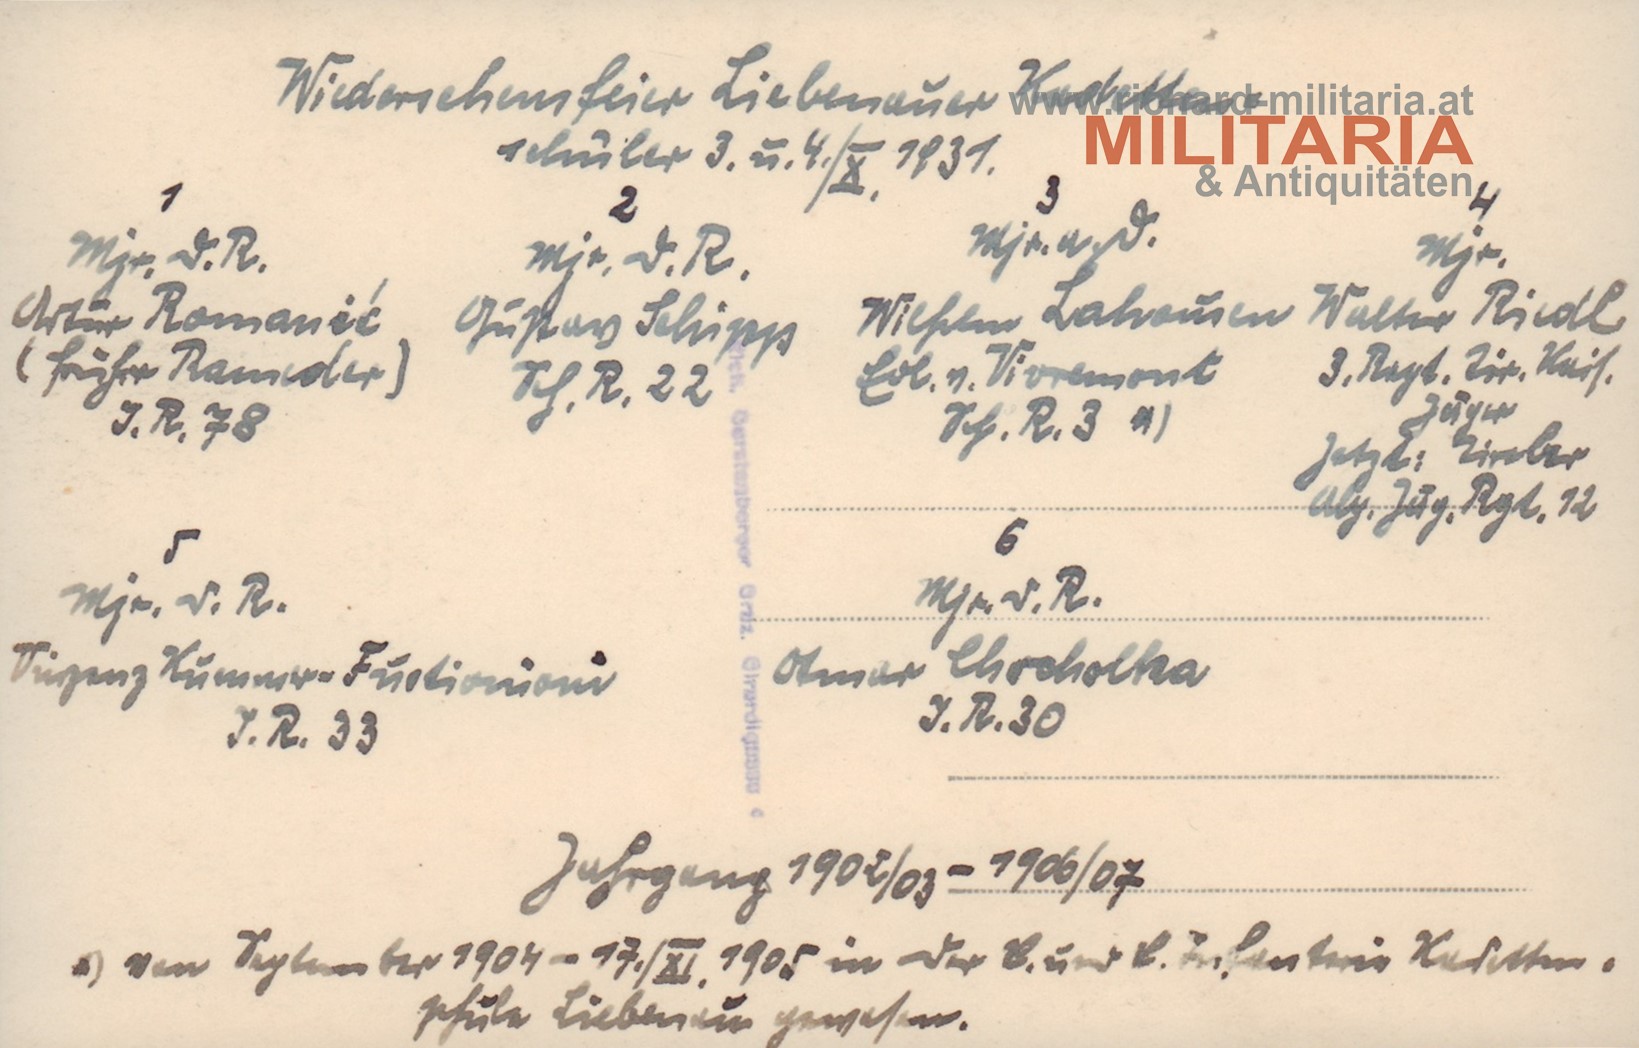 Wiedersehensfeier Liebenauer Kadetten-
schüler 3. u. 4./X. 1931.
www.richard-militaria.at
MILITARIA
& Antiquitäten
1
Mjr. d. R.
Artur Romanić
(früher Rameder)
I. R. 78
2
Mjr. d. R.
Gustav Schipp
Sch. R. 22
3
Mjr. a. D.
Wilhelm Lahousen
Edl. v. Vivremont
Sch. R. 3 *)
4
Mjr.
Walter Riedl
3. Regt. Tir. Kais.
Jäger
Jetzt: Tiroler
Alp. Jäg. Rgt. 12
5
Mjr. d. R.
Vinzenz Kummer-
I. R. 33
6
Mjr. d. R.
Otmar Chocholka
I. R. 30
Gerstenberger Graz. Girardigasse
Jahrgang 1902/03 - 1906/07
*) von September 1904 - 17./XI. 1905 in der k. und k. Infanterie Kadetten-
schule Liebenau gewesen.